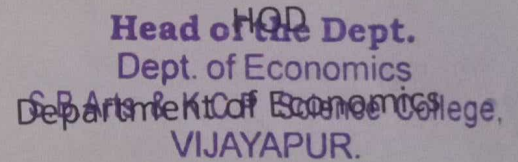 HOD
Head of the Dept.
Dept. of Economics
Department of Economics
S.B. Arts & K.C.P. Science College,
VIJAYAPUR.